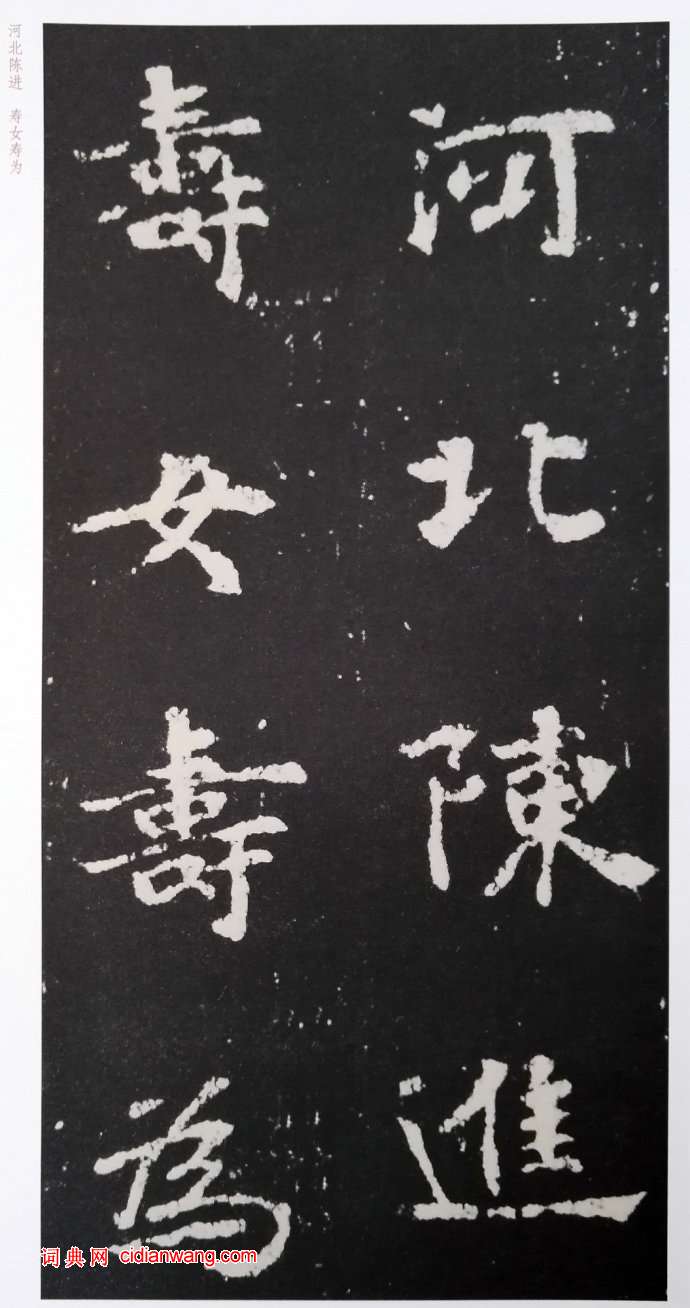 河北陳進
壽女壽為
河北陈进 寿女寿为
词典网 cidianwang.com